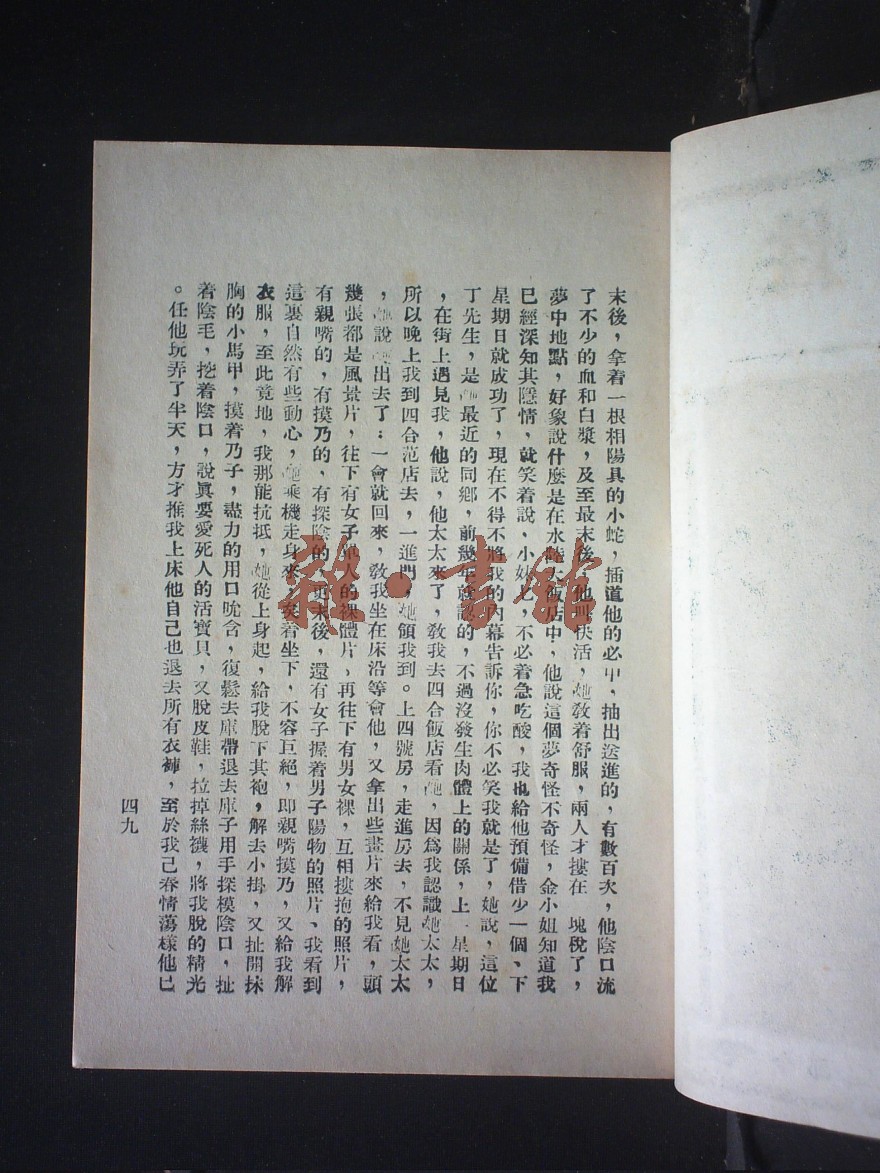 末後，拿着一根相陽具的小蛇，插道他的必中，抽出送進的，有數百次，他陰口流
了不少的血和白漿，及至最末後，他叫快活，她教着舒服，兩人才摟在 塊稅了，
夢中地點，好象說什麼是在水陸大飯店中，他說這個夢奇怪不奇怪，金小姐知道我
已經深知其隱情，就笑着說，小妹七，不必着急吃酸，我也給他預備借少一個、下
星期日就成功了，現在不得不將我的內幕告訴你，你不必笑我就是了，她說，這位
丁先生，是她最近的同鄉，前幾年就認的，不過沒發生肉體上的關係，上一星期日
，在街上遇見我，他說，他太太來了，教我去四合飯店看她，因爲我認識她太太，
所以晚上我到四合范店去，一進門，她領我到。上四號房，走進房去，不見她太太
，她說她出去了：一會就回來，教我坐在床沿等會他，又拿出些畫片來給我看，頭
幾張都是風景片，往下有女子單人的裸體片，再往下有男女裸，互相摟抱的照片，
有親嘴的，有摸乃的、有探陰的，更末後，還有女子握着男子陽物的照片、我看到
這裏自然有些動心，她乘機走身來，矣着坐下，不容巨絶，即親嘴摸乃，又給我解
衣服，至此竟地，我那能抗抵，她從上身起，給我脫下其袍，解去小掛，又扯開抹
胸的小馬甲，摸着乃子，盡力的用口吮含，復鬆去庫帶退去庫子用手探模陰口，扯
着陰毛，挖着陰口，說眞要愛死人的活寶貝，又脫皮鞋，拉掉絲襪，將我脫的精光
。任他玩弄了半天，方才推我上床他自己也退去所有衣褲，至於我己春情蕩樣他已
四九
雅·書館